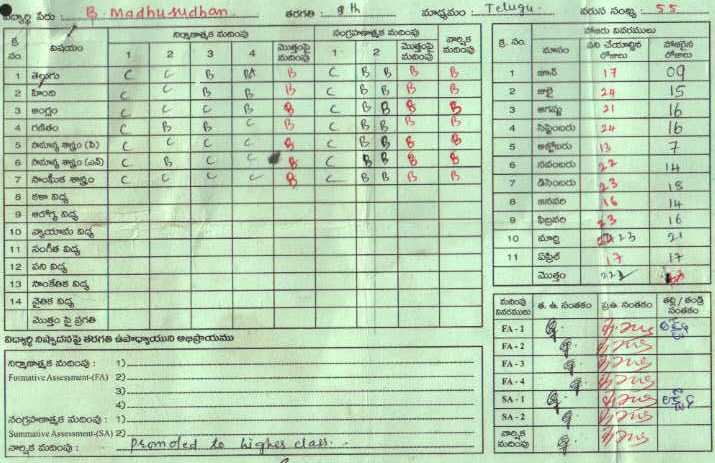 విద్యార్థి పేరు : B. Madhusudhan తరగతి : 9th మాధ్యమం : Telugu వరుస సంఖ్య : 55
క్ర. నం విషయం నిర్మాణాత్మక మదింపు సంగ్రహణాత్మక మదింపు వార్షిక మదింపు
1 2 3 4 మొత్తంపై మదింపు 1 2 మొత్తంపై మదింపు
1 తెలుగు C C B B B C B B B B
2 హింది C C B B B C B B B B
3 ఆంగ్లం C C C B B C B B B B
4 గణితం C B B C B C B B B B
5 సామాన్య శాస్త్రం (పి) C C C C B C B B B B
6 సామాన్య శాస్త్రం (ఎన్) C B C B C B B B B
7 సాంఘిక శాస్త్రం C C C C B C B B B B
8 కళా విద్య
9 ఆరోగ్య విద్య
10 వ్యాయామ విద్య
11 సంగీత విద్య
12 పని విద్య
13 సాంకేతిక విద్య
14 నైతిక విద్య
మొత్తం పై ప్రగతి
విద్యార్థి నిష్పాదనపై తరగతి ఉపాధ్యాయుని అభిప్రాయము
నిర్మాణాత్మక మదింపు : 1)
Formative Assessment-(FA) 2)
3)
4)
సంగ్రహణాత్మక మదింపు : 1)
Summative Assessment-(SA) 2)
వార్షిక మదింపు : promoted to higher class.
హాజరు వివరములు
క్ర. నం. మాసం పని చేయాల్సిన రోజులు హాజరైన రోజులు
1 జూన్ 17 09
2 జులై 24 15
3 ఆగష్టు 21 16
4 సెప్టెంబరు 24 16
5 అక్టోబరు 13 7
6 నవంబరు 22 14
7 డిసెంబరు 23 18
8 జనవరి 16 14
9 ఫిబ్రవరి 23 16
10 మార్చి 23 21
11 ఏప్రిల్ 17 17
మొత్తం 223
మదింపు వివరములు త. ఉ. సంతకం ప్రఉ. సంతకం తల్లి / తండ్రి సంతకం
FA - 1
FA - 2
FA - 3
FA - 4
SA - 1
SA - 2
వార్షిక మదింపు